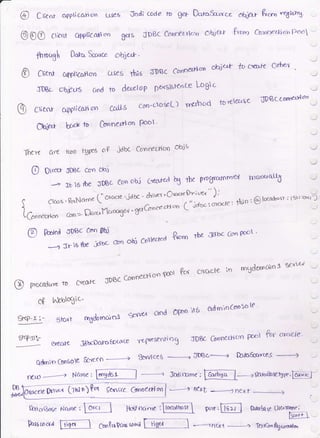 ④ Client application uses Jndi code to get DataSource object from registry
⑤⑥⑦ Client application gets JDBC Connection object from Connection Pool
through Data Source object.
⑧ Client application uses this JDBC Connection object to create other
JDBC objects and to develop persistence Logic
⑨ Client application calls con.close() method to release JDBC connection
Object back to Connection Pool.
There are two types of jdbc Connection objs
① Direct JDBC con obj
→ It is the JDBC con obj created by the programmer manually
Class.forName("oracle.jdbc.driver.OracleDriver");
Connection con = DriverManager.getConnection("jdbc:oracle:thin:@localhost:
② Pooled JDBC con obj
→ It is the jdbc con obj collected from the JDBC con pool.
⊛ procedure to create JDBC Connection pool for oracle in mydomain3 server
of Weblogic.
Step-1:- Start mydomain3 server and open its adminconsole.
Step-2:- create JdbcDataSource representing JDBC Connection pool for oracle.
admin console screen → Services → JDBC → DataSources →
new → Name: myds1 → Jndi name: → Database type: Oracle
DB Oracle Driver (Thin) for Service Connection → next → next →
Database Name: Orcl Host name: localhost port: 1521 Database Username:
Password tiger Confirm Password tiger → next → Test Configuration